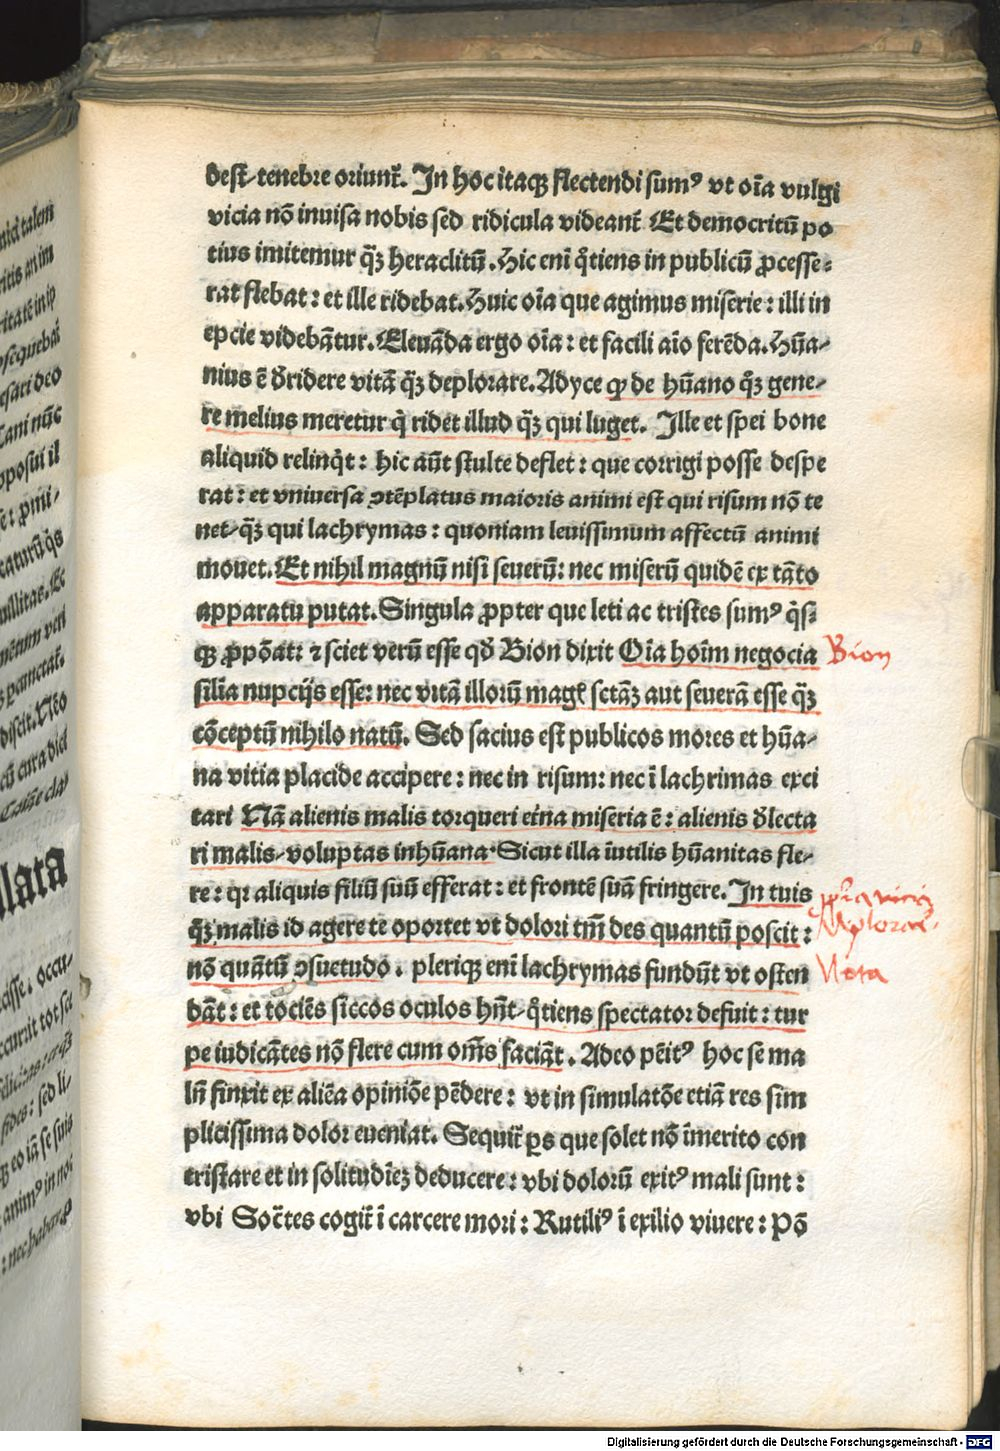 dest-tenebre oriunt̃. In hoc itaqꝫ flectendi sumꝰ vt oĩa vulgi
vicia nõ inuisa nobis sed ridicula videant̃ Et democritũ po
tius imitemur q̃ꝫ heraclitũ. Hic eni q̃tiens in publicũ ꝓcesse-
rat flebat: et ille ridebat. Huic oĩa que agimus miserie: illi in
epcie videbãtur. Eleuãda ergo oĩa: et facili aĩo ferẽda. Hũa-
nius ẽ d̃ridere vitã q̃ꝫ deplorare. Adyce ꝙ de hũano q̃ꝫ gene-
re melius meretur q̃ ridet illud q̃ꝫ qui luget. Ille et spei bone
aliquid relinq̃t: hic aũt stulte deflet: que corrigi posse despe
rat: et vniuersa ↄtẽplatus maioris animi est qui risum nõ te
net-q̃ꝫ qui lachrymas: quoniam leuissimum affectũ animi
mouet. Et nihil magnũ nisi seuerũ: nec miserũ quidẽ ex tãto
apparatu putat. Singula ꝓpter que leti ac tristes sumꝰ q̃s-
qꝫ ꝓpõat: ⁊ sciet verũ esse qď Bion dixit Oĩa hoĩm negocia
silia nupcijs esse: nec vitã illorũ mag̃ sctãꝫ aut seuerã esse q̃ꝫ
cõceptũ nihilo natũ. Sed sacius est publicos mores et hũa-
na vitia placide accipere: nec in risum: nec ĩ lachrimas exci
tari Nã alienis malis torqueri et̃na miseria ẽ: alienis d̃lecta
ri malis-voluptas inhũana. Sicut illa ĩutilis hũanitas fle-
re: qꝛ aliquis filiũ suũ efferat: et frontẽ suã fringere. In tuis
q̃ꝫ malis id agere te oportet vt dolori tm̃ des quantũ poscit:
nõ quãtũ ↄsuetudo. pleriqꝫ eni lachrymas fundũt vt osten
dãt: et tociẽs siccos oculos hñt-q̃tiens spectator defuit: tur
pe iudicãtes nõ flere cum om̃s faciãt. Adeo pẽitꝰ hoc se ma
lũ finxit ex aliẽa opiniõe pẽdere: vt in simulatõe etiã res sim
plicissima dolor eueniat. Sequit̃ ꝑs que solet nõ ĩmerito con
tristare et in solitudĩeꝫ deducere: vbi dolorũ exitꝰ mali sunt:
vbi Soc̃tes cogit̃ ĩ carcere mori: Rutiliꝰ ĩ exilio viuere: Põ
Bion
Nota
llata
Digitalisierung gefördert durch die Deutsche Forschungsgemeinschaft - DFG